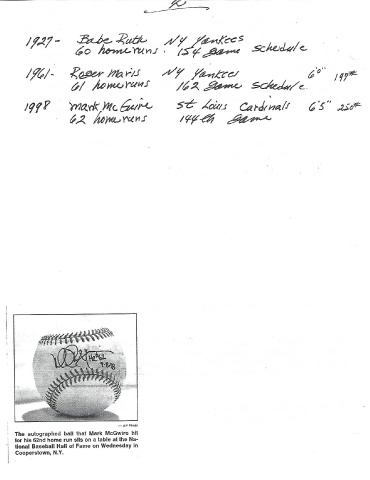 1927- Babe Ruth NY Yankees
60 home runs. 154 game schedule
1961- Roger Maris NY Yankees 6'0" 197#
61 home runs 162 game schedule
1998 Mark McGuire St Louis Cardinals 6'5" 250#
62 home runs 144th game
The autographed ball that Mark McGwire hit
for his 62nd home run sits on a table at the Na-
tional Baseball Hall of Fame on Wednesday in
Cooperstown, N.Y.